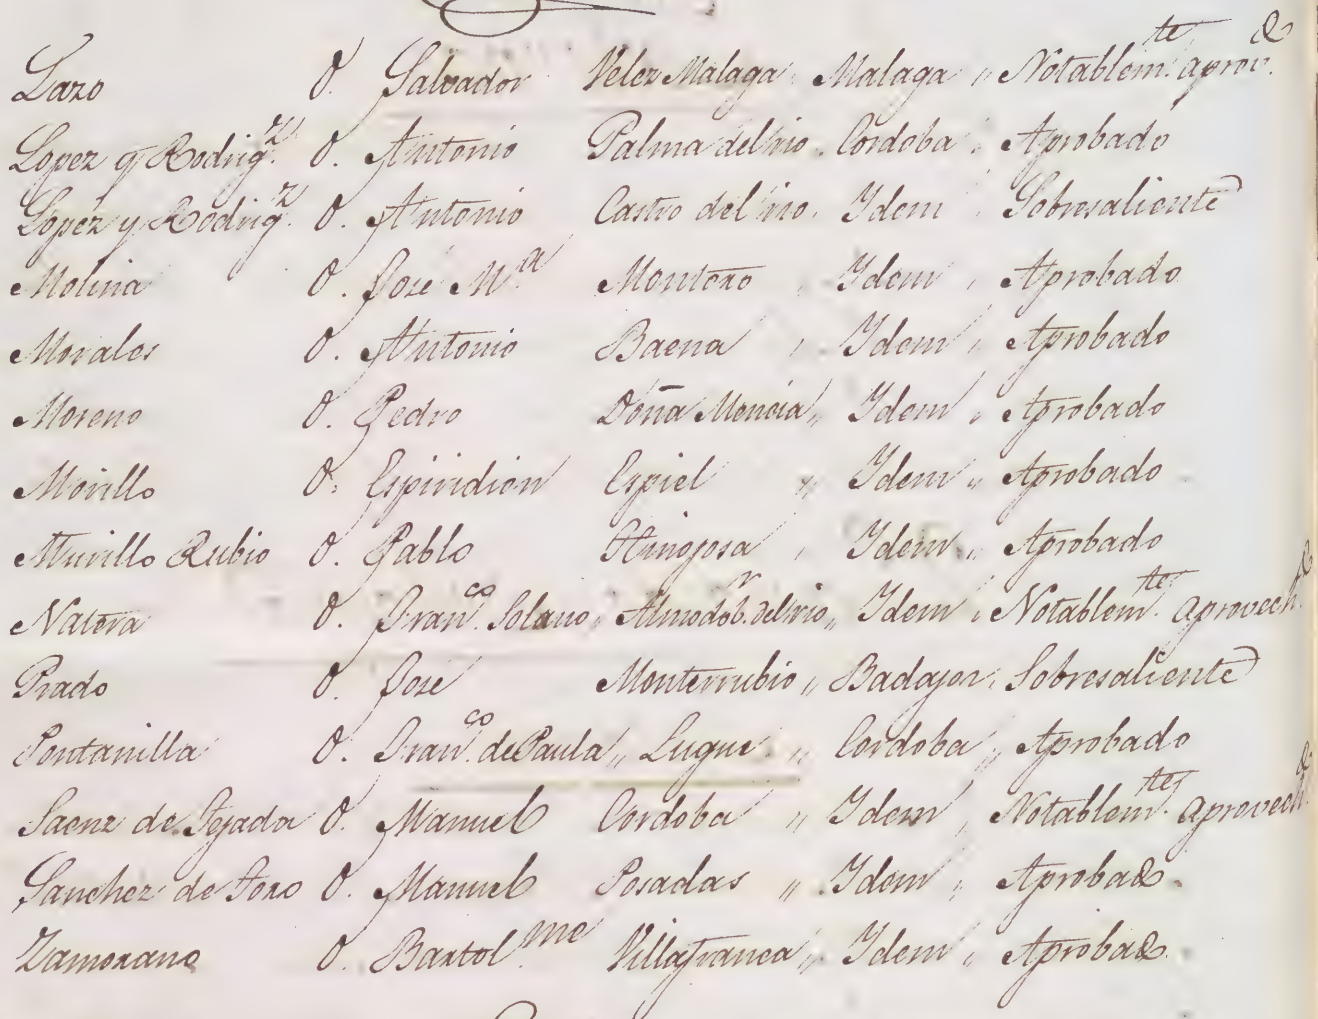 Lazo D. Salvador Velez Malaga Malaga " Notablem.te aprov.&
Lopez y Rodrig.z D. Antonio Palma del rio. Cordoba " Aprobado
Lopez y Rodrig.z D. Antonio Castro del rio. Ydem " Sobresaliente
Molina D. José M.a Montoro " Ydem " Aprobado
Morales D. Antonio Baena " Ydem " Aprobado
Moreno D. Pedro Doña Mencia " Ydem " Aprobado
Morillo D. Espiridion Espiel " Ydem " Aprobado
Murillo Rubio D. Pablo Hinojosa " Ydem " Aprobado
Natera D. Fran.co Solano " Almodob.r del rio " Ydem " Notablem.te aprovech.&
Prado D. José Monterrubio " Badajoz " Sobresaliente
Fontanilla D. Fran.co de Paula " Luque " Cordoba " Aprobado
Saenz de Tejada D. Manuel Cordoba " Ydem " Notablem.te aprovech.&
Sanchez de Toro D. Manuel Posadas " Ydem " Aprobado.
Zamorano D. Bartol.me Villafranca " Ydem " Aprobado.